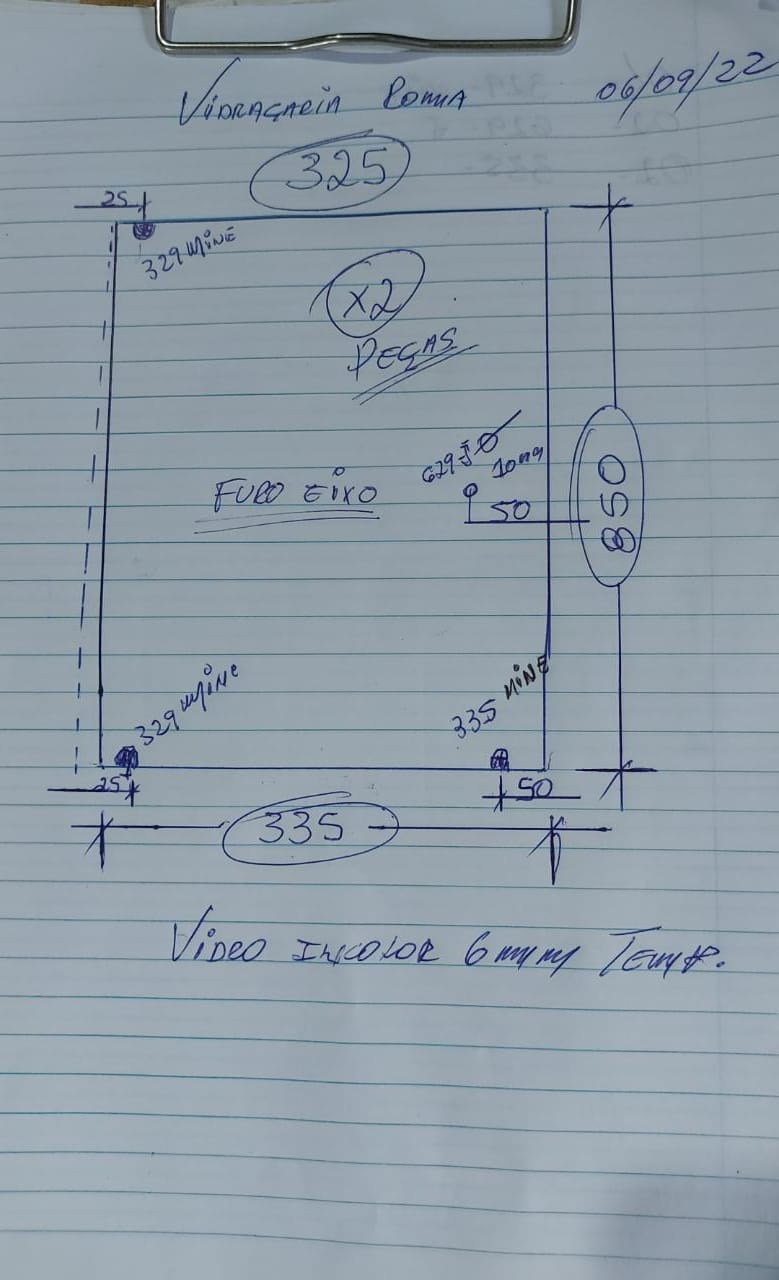 VIDRAÇARIA ROMA 06/09/22
325
25
329 MINE
X2
PEÇAS
629 J Ø
10 MM
FURO EIXO
50
850
329 MINE
335 MINE
25
50
335
VIDRO INCOLOR 6 mm TEMP.